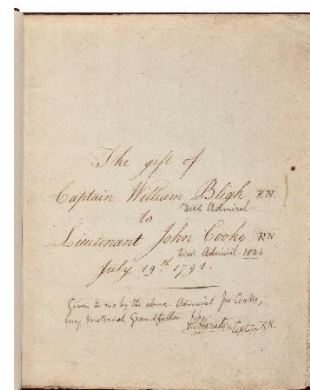 The gift of
Captain William Bligh RN.
Vice Admiral
to
Lieutenant John Cooke RN
Rear Admiral
July 19th 1791.
Given to me by the above Admiral Jno Cooke,
my maternal Grandfather Captain RN.